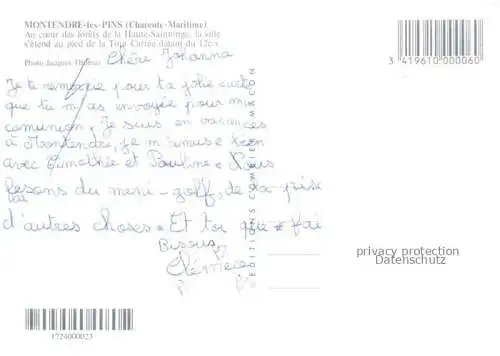 MONTENDRE-les-PINS (Charente-Maritime)
Au cœur des forêts de la Haute-Saintonge, la ville
s'étend au pied de la Tour Carrée datant du 12e s
Photo Jacques
Chère Johanna
Je te remercie pour ta jolie carte
que tu m'as envoyée pour ma
comunion. Je suis en vacances
à Montendre, je m'amuse bien
avec Timothée et Pauline. Nous
fesons du mini-golf, de la
d'autres choses. Et toi que fai
Bisous
Clémence
3 419610 000060
privacy protection
Datenschutz
1724000023